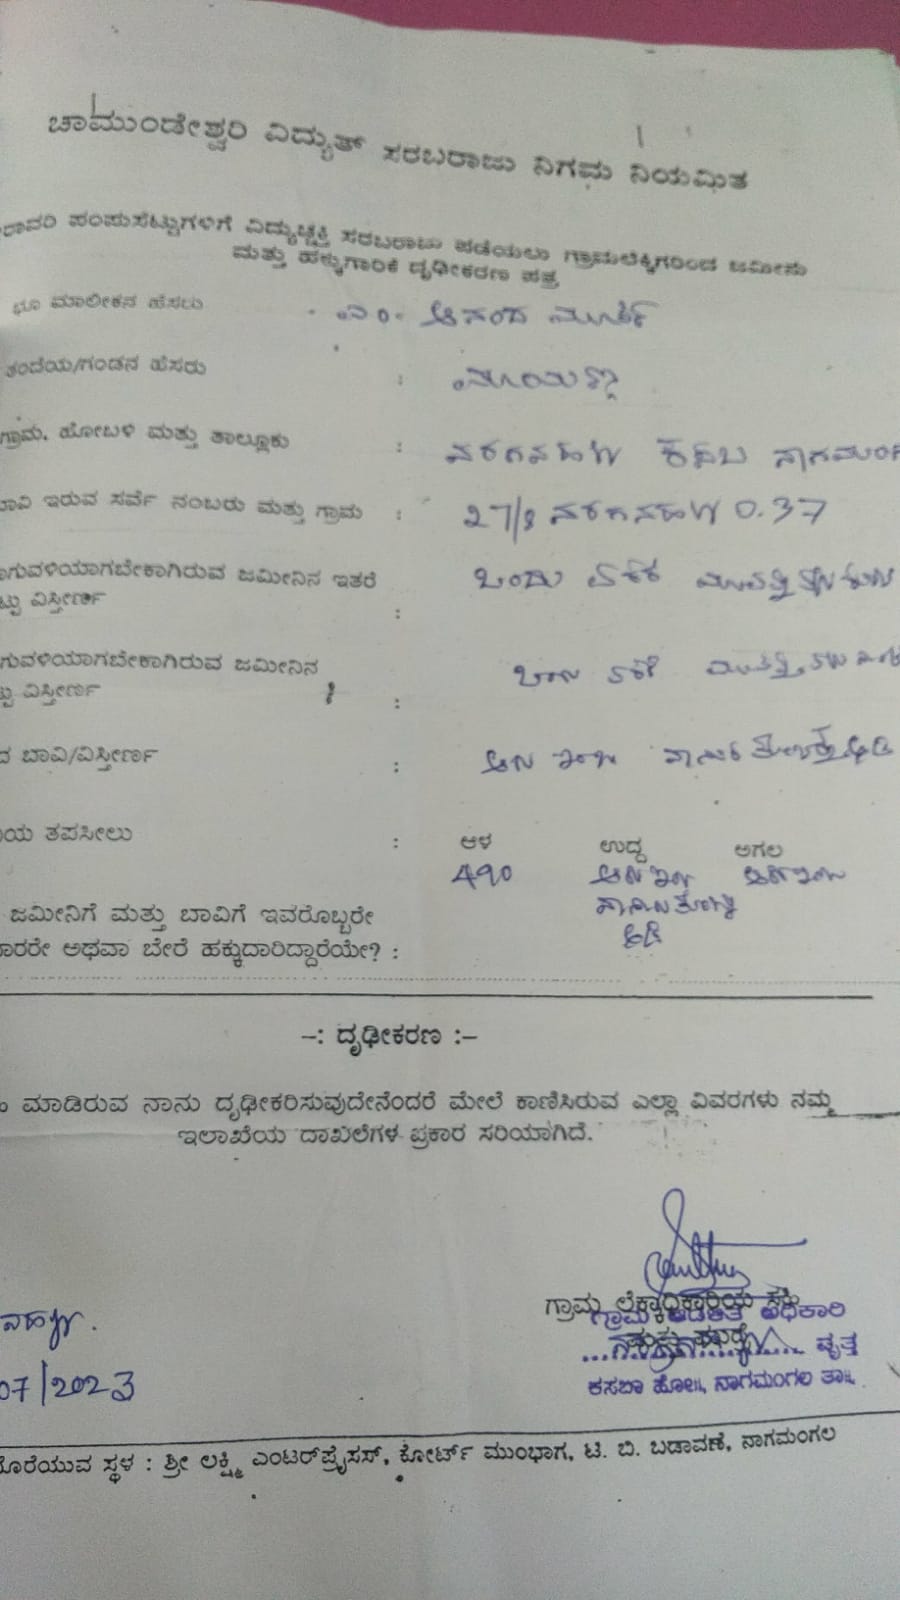 ಚಾಮುಂಡೇಶ್ವರಿ ವಿದ್ಯುತ್ ಸರಬರಾಜು ನಿಗಮ ನಿಯಮಿತ
ರಾವರಿ ಪಂಪುಸೆಟ್ಟುಗಳಿಗೆ ವಿದ್ಯುಚ್ಛಕ್ತಿ ಸರಬರಾಜು ಪಡೆಯಲು ಗ್ರಾಮಲೆಕ್ಕಿಗರಿಂದ ಜಮೀನು
ಮತ್ತು ಹಕ್ಕುಗಾರಿಕೆ ದೃಢೀಕರಣ ಪತ್ರ
ಭೂ ಮಾಲೀಕನ ಹೆಸರು : ಆನಂದ ಮೂರ್ತಿ
ತಂದೆಯ/ಗಂಡನ ಹೆಸರು : ಮಾಯಣ್ಣ
ಗ್ರಾಮ, ಹೋಬಳಿ ಮತ್ತು ತಾಲ್ಲೂಕು : ನರಗನಹಳ್ಳಿ ಕಸಬ ನಾಗಮಂಗ
ಬಾವಿ ಇರುವ ಸರ್ವೆ ನಂಬರು ಮತ್ತು ಗ್ರಾಮ : ನರಗನಹಳ್ಳಿ 0.37
ಾಗುವಳಿಯಾಗಬೇಕಾಗಿರುವ ಜಮೀನಿನ ಇತರೆ ಒಂದು ಎಕರೆ
ಟ್ಟು ವಿಸ್ತೀರ್ಣ :
ಗುವಳಿಯಾಗಬೇಕಾಗಿರುವ ಜಮೀನಿನ
ಟ್ಟು ವಿಸ್ತೀರ್ಣ :
ದ ಬಾವಿ/ವಿಸ್ತೀರ್ಣ : ಆರು ಇಂಚು
ಿಯ ತಪಸೀಲು : ಆಳ ಉದ್ದ ಅಗಲ
490 ಆರು ಇಂಚು
ಅಡಿ
ಜಮೀನಿಗೆ ಮತ್ತು ಬಾವಿಗೆ ಇವರೊಬ್ಬರೇ
ಾರರೇ ಅಥವಾ ಬೇರೆ ಹಕ್ಕುದಾರಿದ್ದಾರೆಯೇ? :
-: ದೃಢೀಕರಣ :-
ಮಾಡಿರುವ ನಾನು ದೃಢೀಕರಿಸುವುದೇನೆಂದರೆ ಮೇಲೆ ಕಾಣಿಸಿರುವ ಎಲ್ಲಾ ವಿವರಗಳು ನಮ್ಮ
ಇಲಾಖೆಯ ದಾಖಲೆಗಳ ಪ್ರಕಾರ ಸರಿಯಾಗಿದೆ.
ಗ್ರಾಮ ಲೆಕ್ಕಾಧಿಕಾರಿಯ ಸಹಿ
ಗ್ರಾಮ ಆಡಳಿತ ಅಧಿಕಾರಿ
ನಹಳ್ಳಿ.
ವೃತ್ತ
07/2023
ಕಸಬಾ ಹೋ||, ನಾಗಮಂಗಲ ತಾ||.
ೊರೆಯುವ ಸ್ಥಳ : ಶ್ರೀ ಲಕ್ಷ್ಮಿ ಎಂಟರ್‌ಪ್ರೈಸಸ್, ಕೋರ್ಟ್ ಮುಂಭಾಗ, ಟಿ. ಬಿ. ಬಡಾವಣೆ, ನಾಗಮಂಗಲ